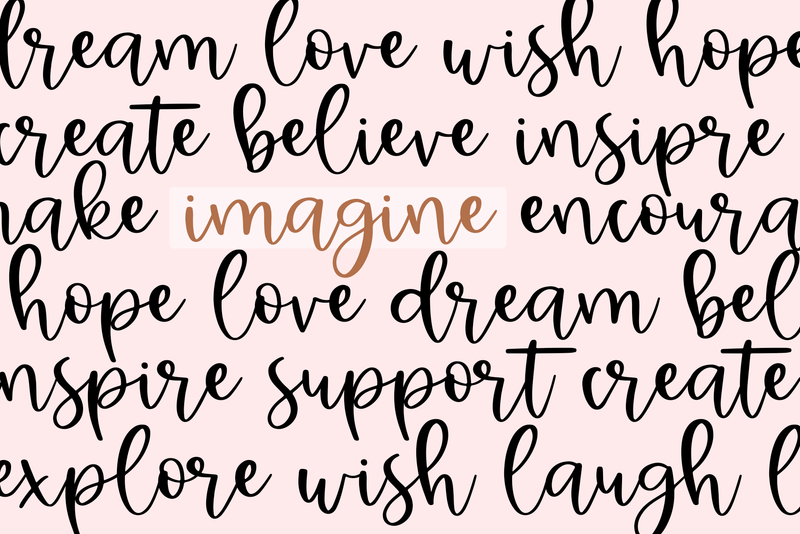 dream love wish hope
create believe insipre
make imagine encoura
hope love dream bel
nspire support create
explore wish laugh l